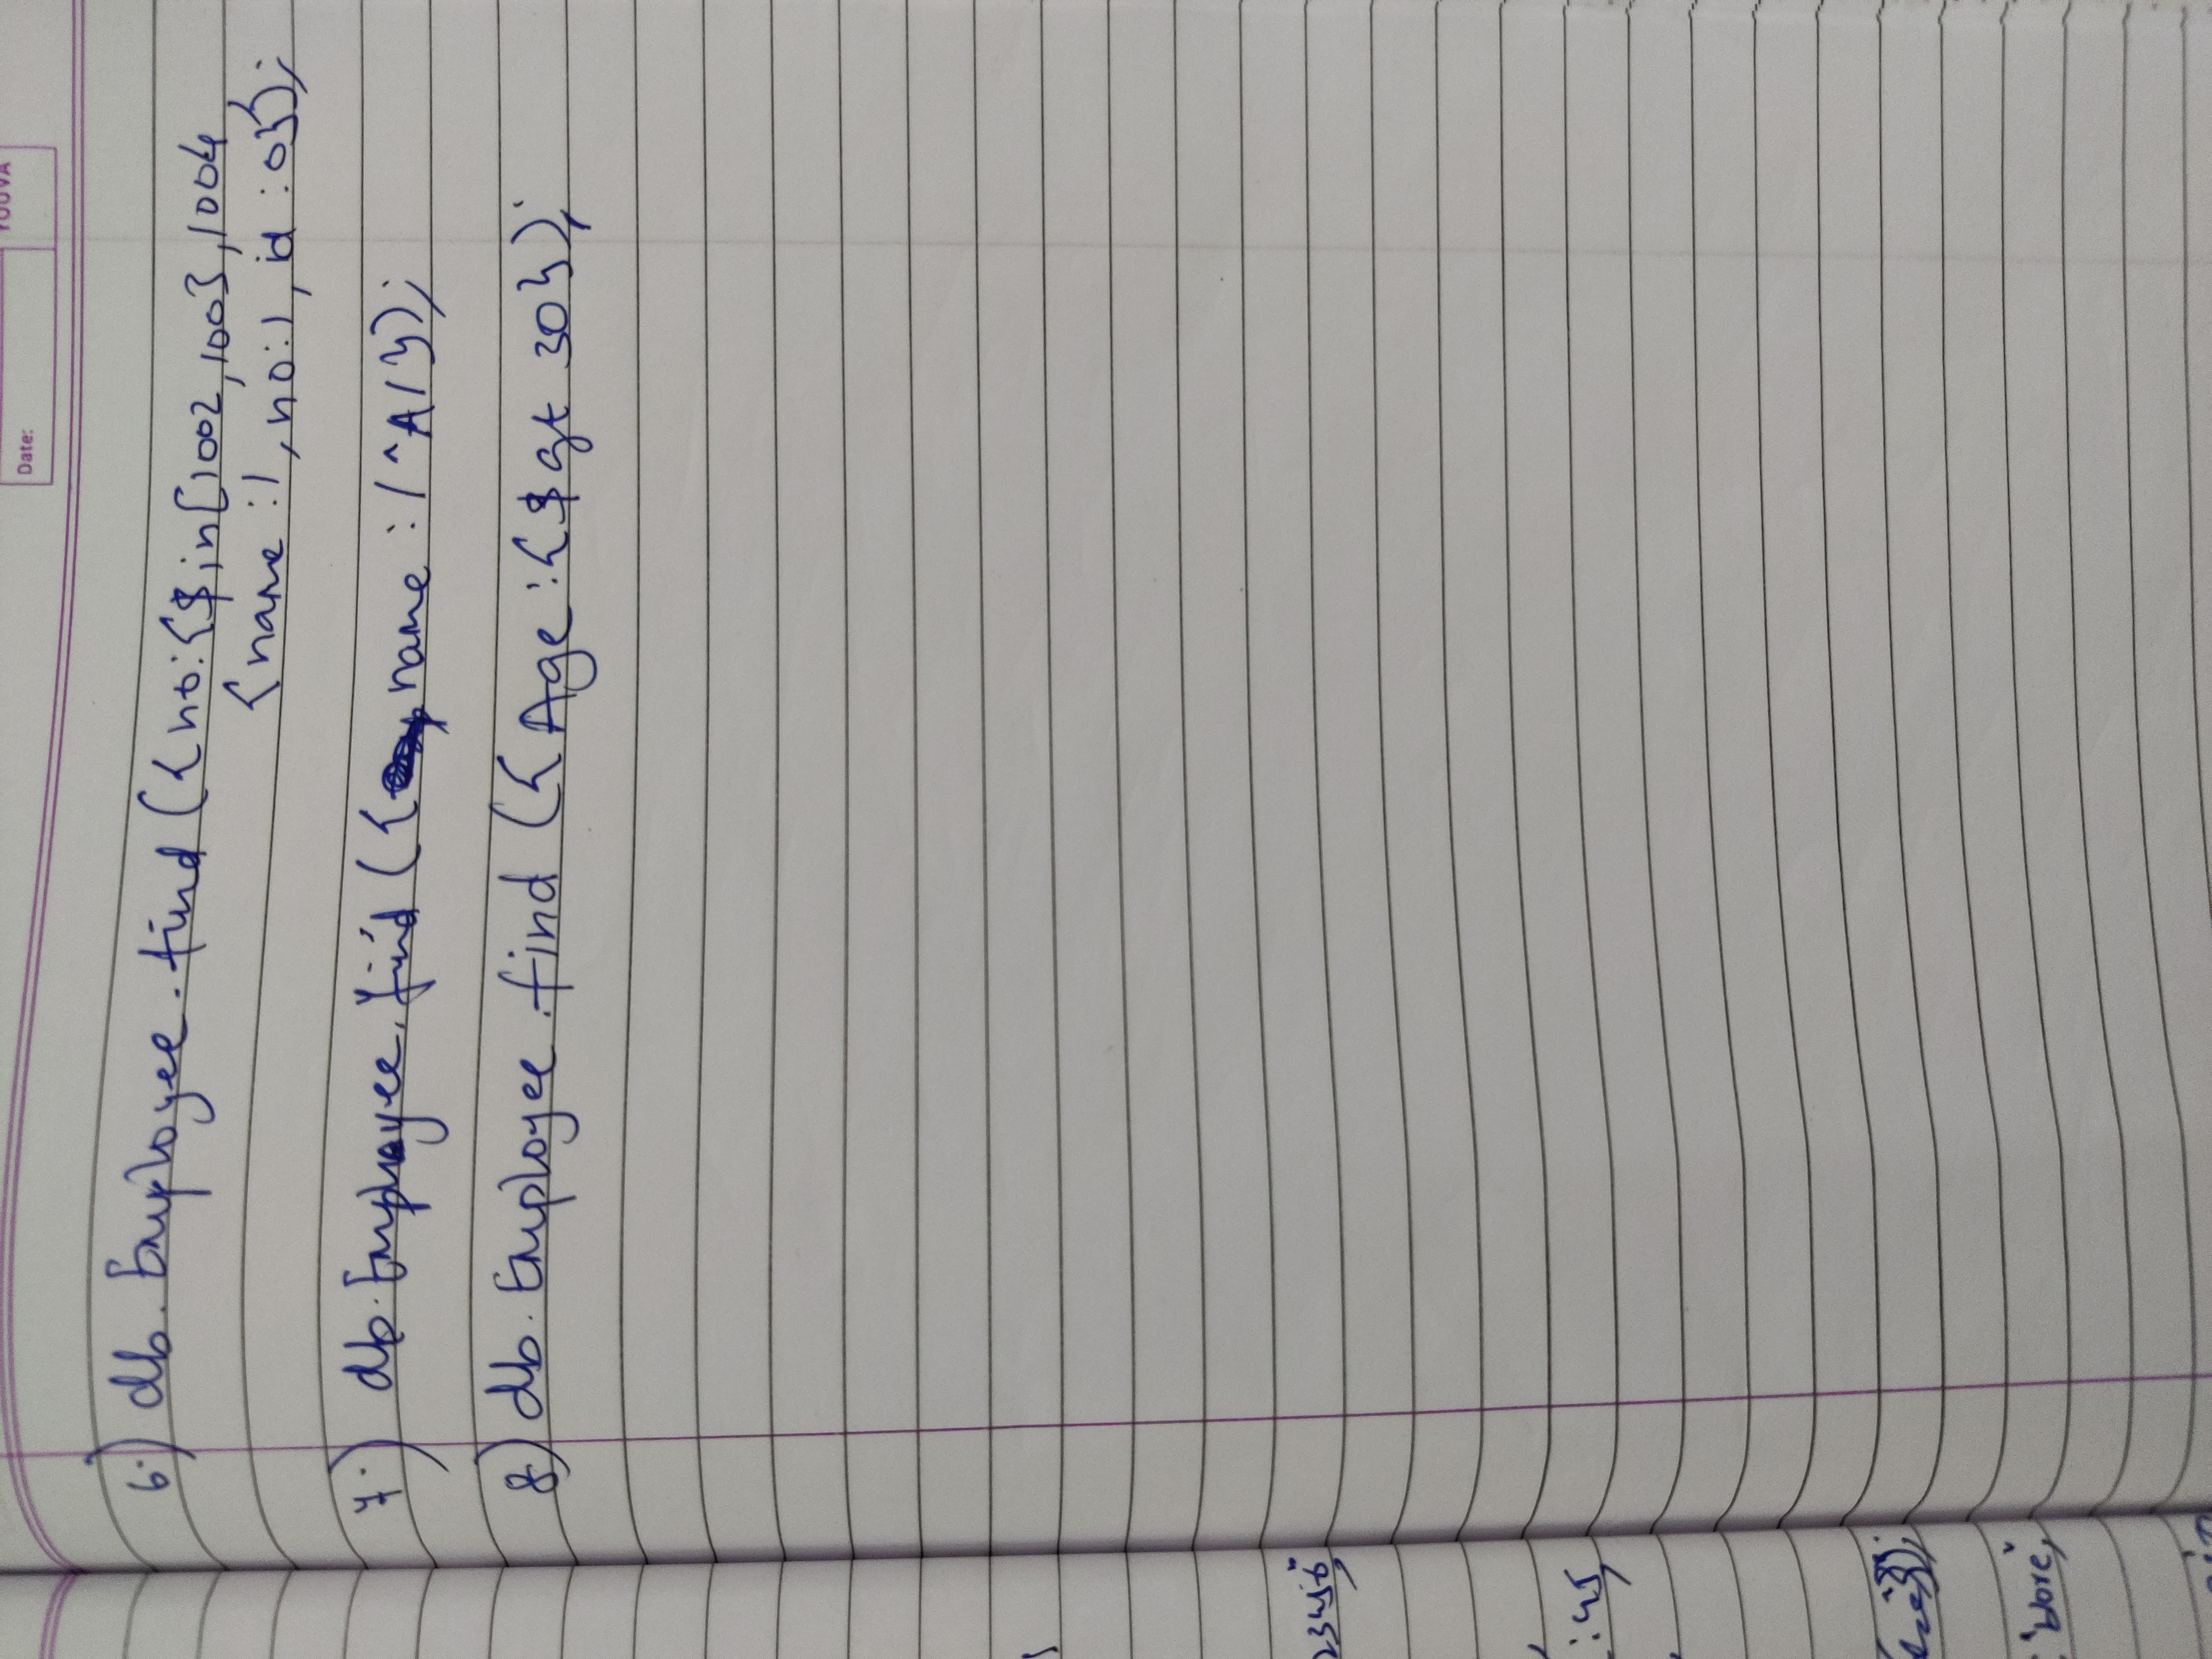 YOUVA
Date:
6.) db.Employee.find ({no:{$in[1002,1003,1004
{name:1,no:1,id:0}});
7.) db.Employee.find ({name:/^A/});
8) db.Employee.find ({Age:{$gt 30});
23456",
:45,
'blore',